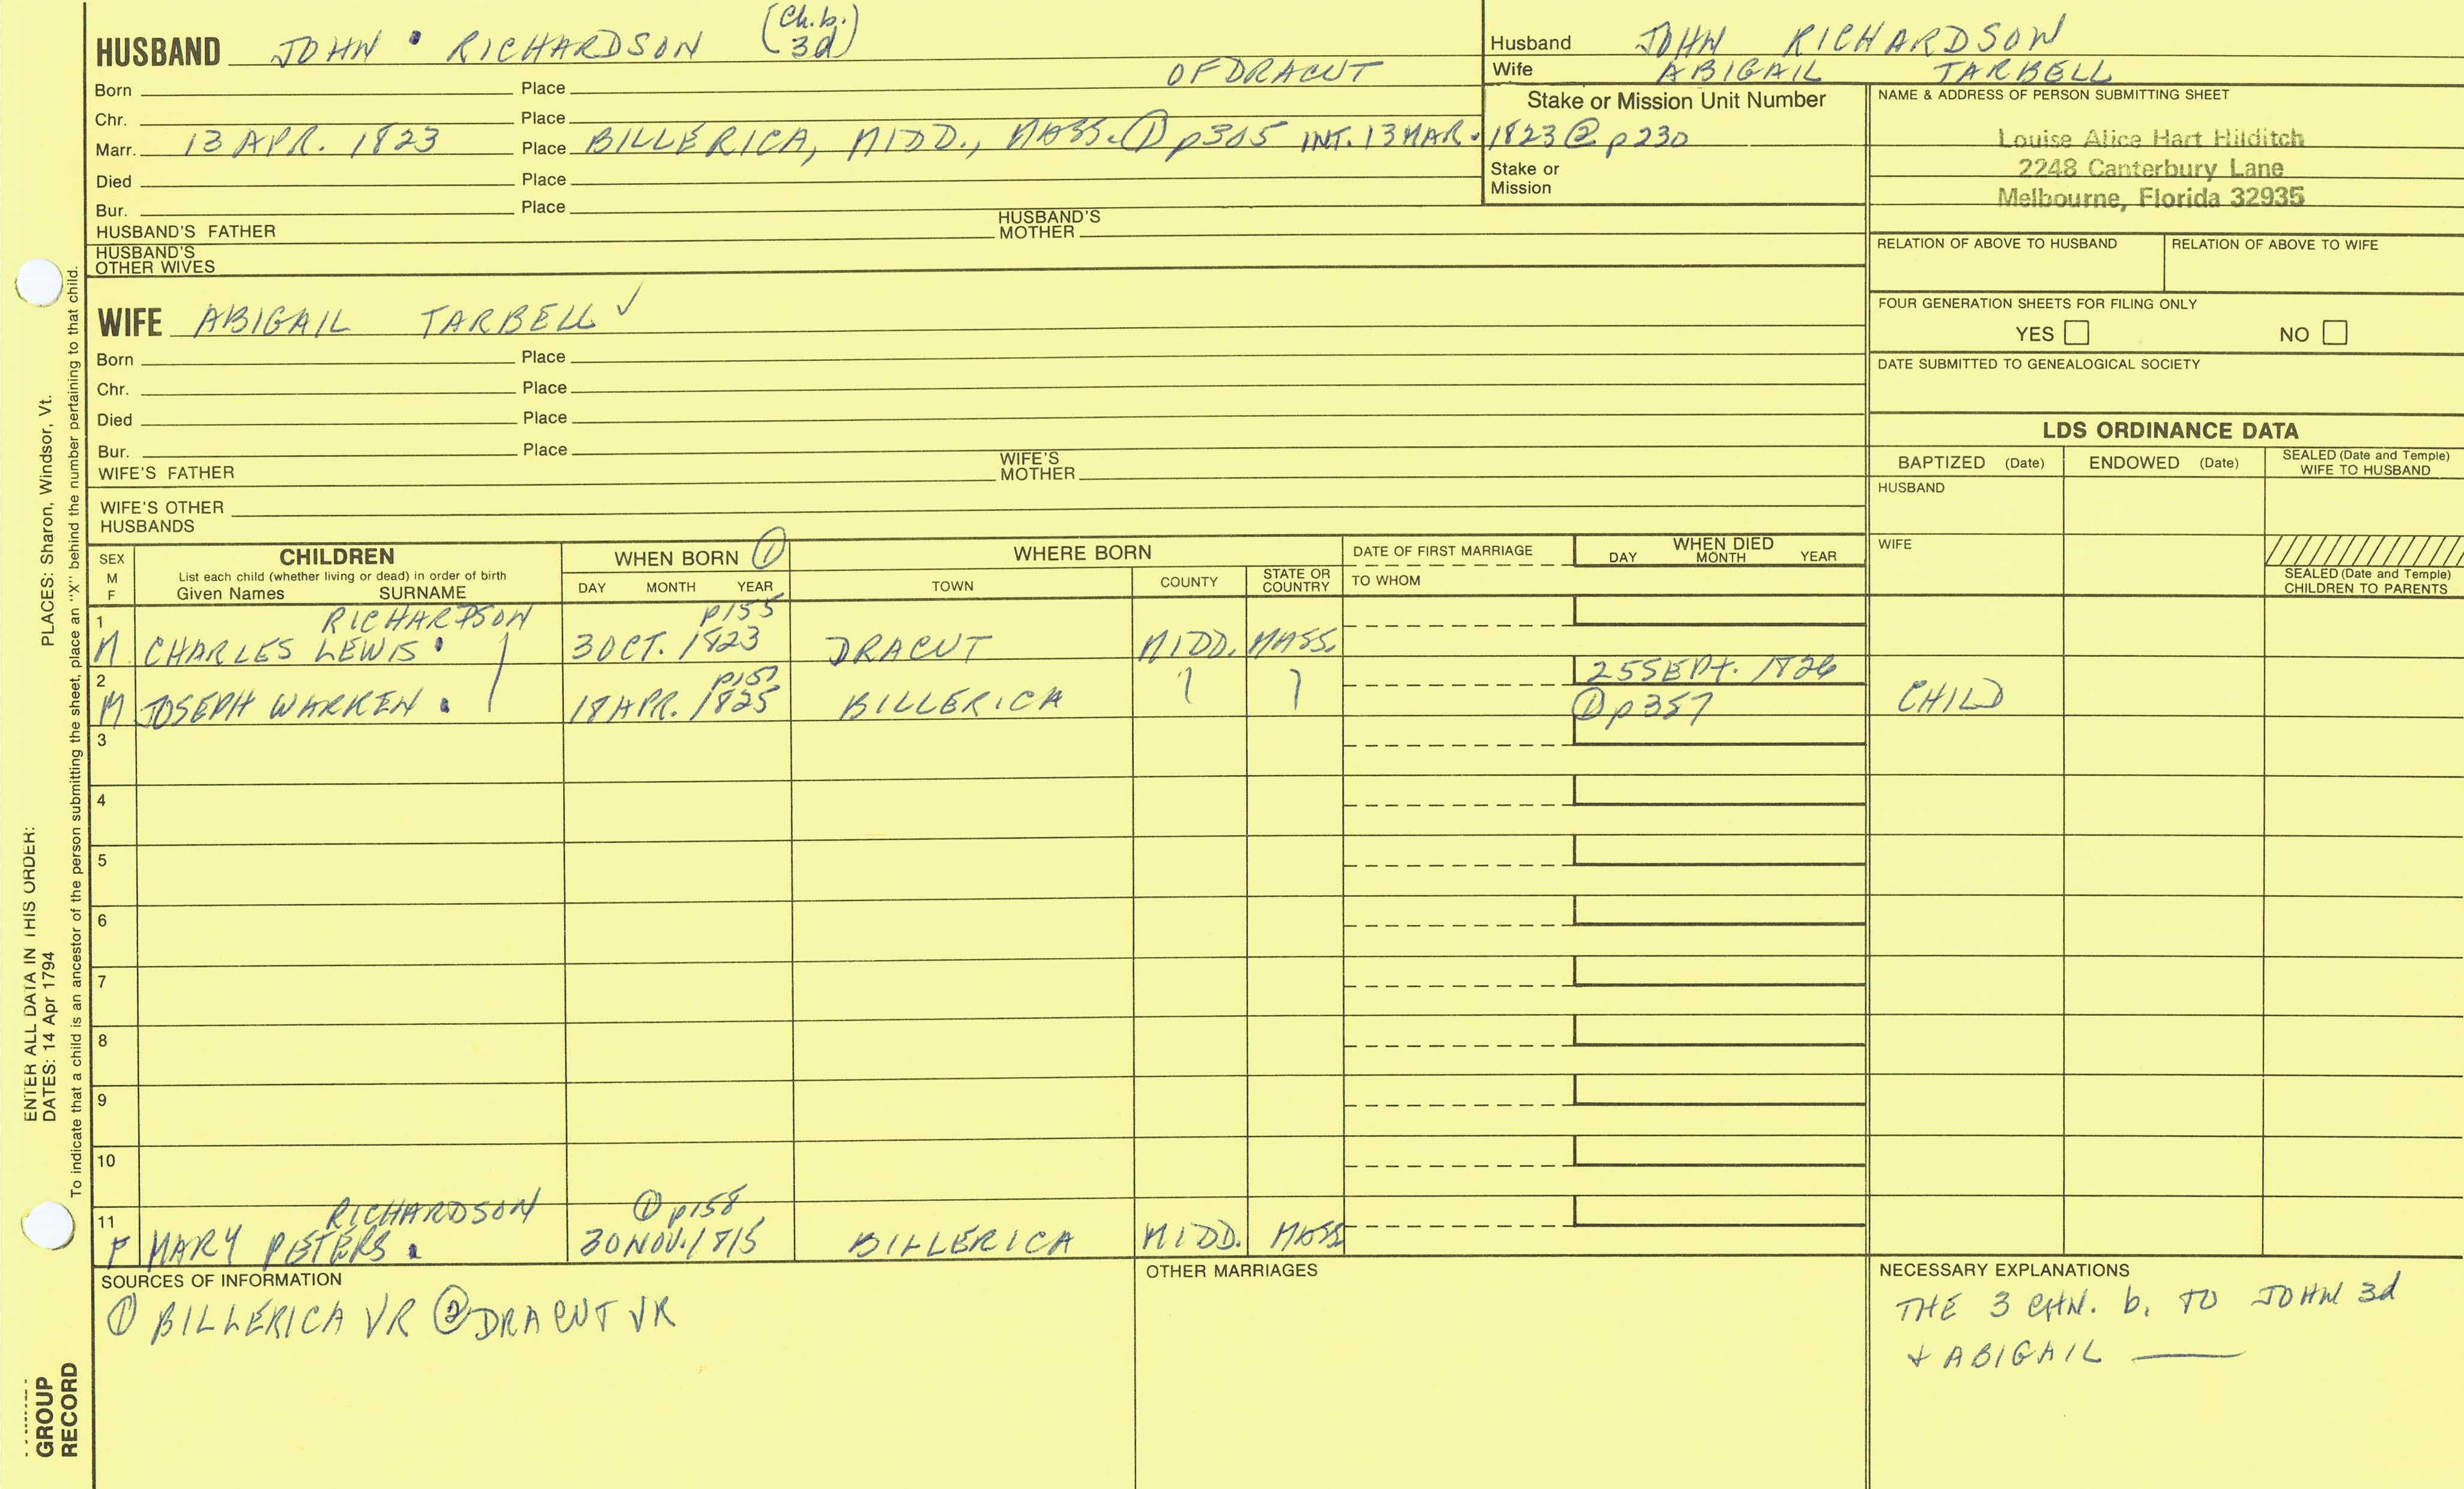 HUSBAND JOHN RICHARDSON (Ch.b. 3d)
Husband JOHN RICHARDSON
Wife ABIGAIL TARBELL
Born Place OF DRACUT
Chr. Place
Marr. 13 APR. 1823 Place BILLERICA, MIDD., MASS. ① p305 INT. 13 MAR. 1823 ② p230
Died Place
Bur. Place
HUSBAND'S FATHER HUSBAND'S MOTHER
HUSBAND'S OTHER WIVES
Stake or Mission Unit Number
Stake or Mission
NAME & ADDRESS OF PERSON SUBMITTING SHEET
Louise Alice Hart Hilditch
2248 Canterbury Lane
Melbourne, Florida 32935
RELATION OF ABOVE TO HUSBAND RELATION OF ABOVE TO WIFE
FOUR GENERATION SHEETS FOR FILING ONLY
YES NO
DATE SUBMITTED TO GENEALOGICAL SOCIETY
WIFE ABIGAIL TARBELL ✓
Born Place
Chr. Place
Died Place
Bur. Place
WIFE'S FATHER WIFE'S MOTHER
WIFE'S OTHER HUSBANDS
LDS ORDINANCE DATA
BAPTIZED (Date) ENDOWED (Date) SEALED (Date and Temple) WIFE TO HUSBAND
HUSBAND
WIFE
SEALED (Date and Temple) CHILDREN TO PARENTS
SEX M F
CHILDREN
List each child (whether living or dead) in order of birth
Given Names SURNAME
WHEN BORN ①
DAY MONTH YEAR
WHERE BORN
TOWN COUNTY STATE OR COUNTRY
DATE OF FIRST MARRIAGE
TO WHOM
WHEN DIED
DAY MONTH YEAR
1 RICHARDSON p155
M CHARLES LEWIS 3 OCT. 1823 DRACUT MIDD. MASS.
2 p157 25 SEPT. 1826
M JOSEPH WARREN 18 APR. 1825 BILLERICA ① p357 CHILD
3
4
5
6
7
8
9
10
11 RICHARDSON ① p158
F MARY PETERS 30 NOV. 1815 BILLERICA MIDD. MASS
SOURCES OF INFORMATION
① BILLERICA VR ② DRACUT VR
OTHER MARRIAGES
NECESSARY EXPLANATIONS
THE 3 CHN. b. TO JOHN 3d
+ ABIGAIL ——
ENTER ALL DATA IN THIS ORDER:
DATES: 14 Apr 1794 PLACES: Sharon, Windsor, Vt.
To indicate that a child is an ancestor of the person submitting the sheet, place an "X" behind the number pertaining to that child.
GROUP
RECORD